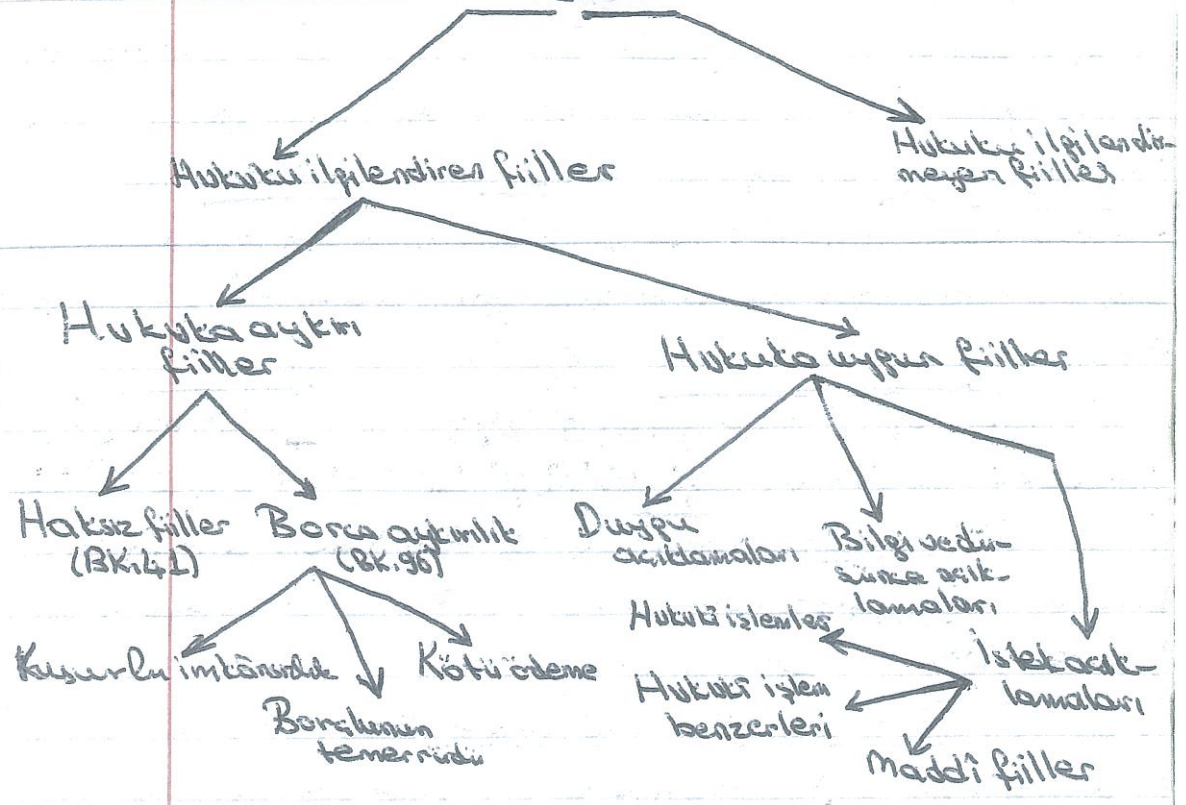 Hukuku ilgilendiren fiiller
Hukuku ilgilendir-
meyen fiiller
Hukuka aykırı
fiiller
Hukuka uygun fiiller
Haksız fiiller
(BK.41)
Borca aykırılık
(BK.96)
Duygu
açıklamaları
Bilgi ve dü-
şünce açık-
lamaları
Kusurlu imkânsızlık
Borçlunun
temerrüdü
Kötü ödeme
Hukukî işlemler
Hukukî işlem
benzerleri
Maddî fiiller
İstek açık-
lamaları